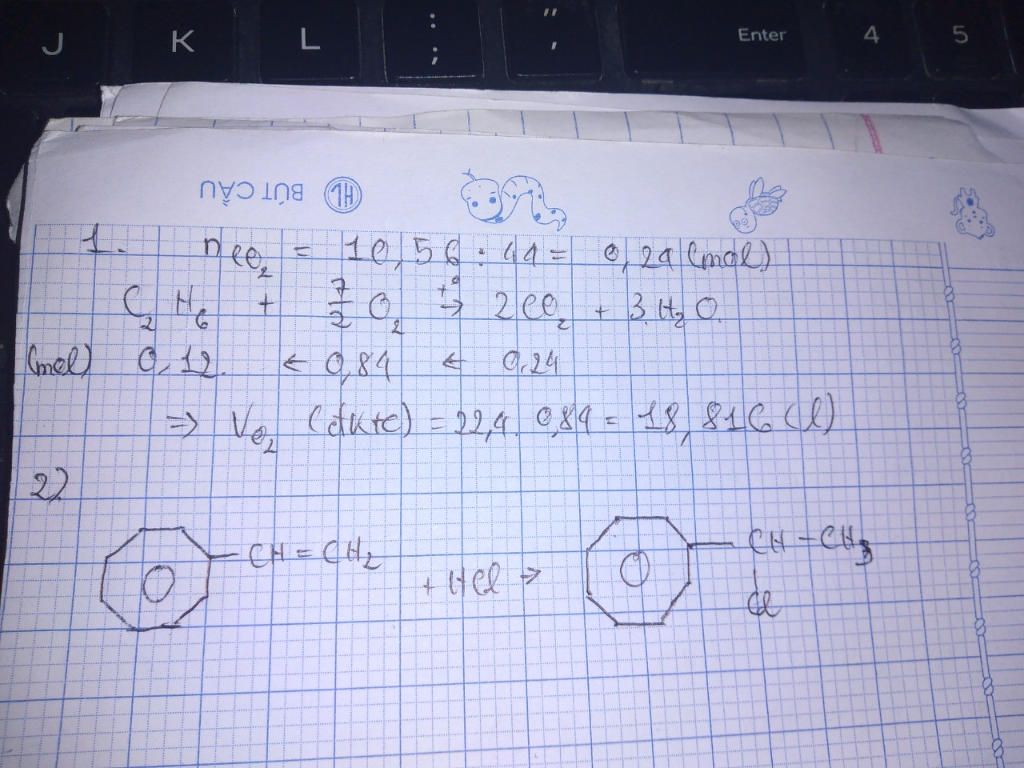 J K L : ; " , Enter 4 5
BÚT CẦU 1H
1. nCO₂ = 10,56 : 44 = 0,24 (mol)
C₂H₆ + 7/2 O₂ →(t°) 2CO₂ + 3.H₂O.
(mol) 0,12. ← 0,84 ← 0,24
⇒ VO₂ (đktc) = 22,4. 0,84 = 18,816 (l)
2)
CH = CH₂ + HCl → CH – CH₃
Cl